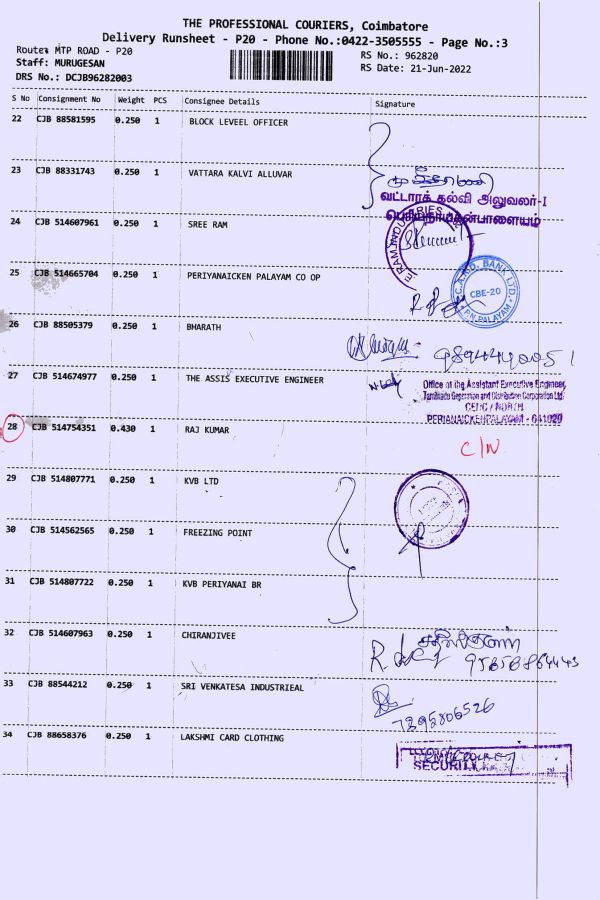 THE PROFESSIONAL COURIERS, Coimbatore
Delivery Runsheet - P20 - Phone No.:0422-3505555 - Page No.:3
Route: MTP ROAD - P20
RS No.: 962820
Staff: MURUGESAN
RS Date: 21-Jun-2022
DRS No.: DCJB96282003
S No Consignment No Weight PCS Consignee Details Signature
22 CJB 88581595 0.250 1 BLOCK LEVEEL OFFICER
23 CJB 88331743 0.250 1 VATTARA KALVI ALLUVAR
வட்டாரக் கல்வி அலுவலர்-I
24 CJB 514607961 0.250 1 SREE RAM
25 CJB 514665704 0.250 1 PERIYANAICKEN PALAYAM CO OP
BANK LTD.
CBE-20
P.N.PALAYAM
26 CJB 88505379 0.250 1 BHARATH
27 CJB 514674977 0.250 1 THE ASSIS EXECUTIVE ENGINEER
Office of the Assistant Executive Engineer,
Tamilnadu Generation and Distribution Corporation Ltd.
PERIANAICKENPALAYAM - 641020
28 CJB 514754351 0.430 1 RAJ KUMAR
C/N
29 CJB 514807771 0.250 1 KVB LTD
30 CJB 514562565 0.250 1 FREEZING POINT
31 CJB 514807722 0.250 1 KVB PERIYANAI BR
32 CJB 514607963 0.250 1 CHIRANJIVEE
33 CJB 88544212 0.250 1 SRI VENKATESA INDUSTRIEAL
7395806526
34 CJB 88658376 0.250 1 LAKSHMI CARD CLOTHING
SECURITY